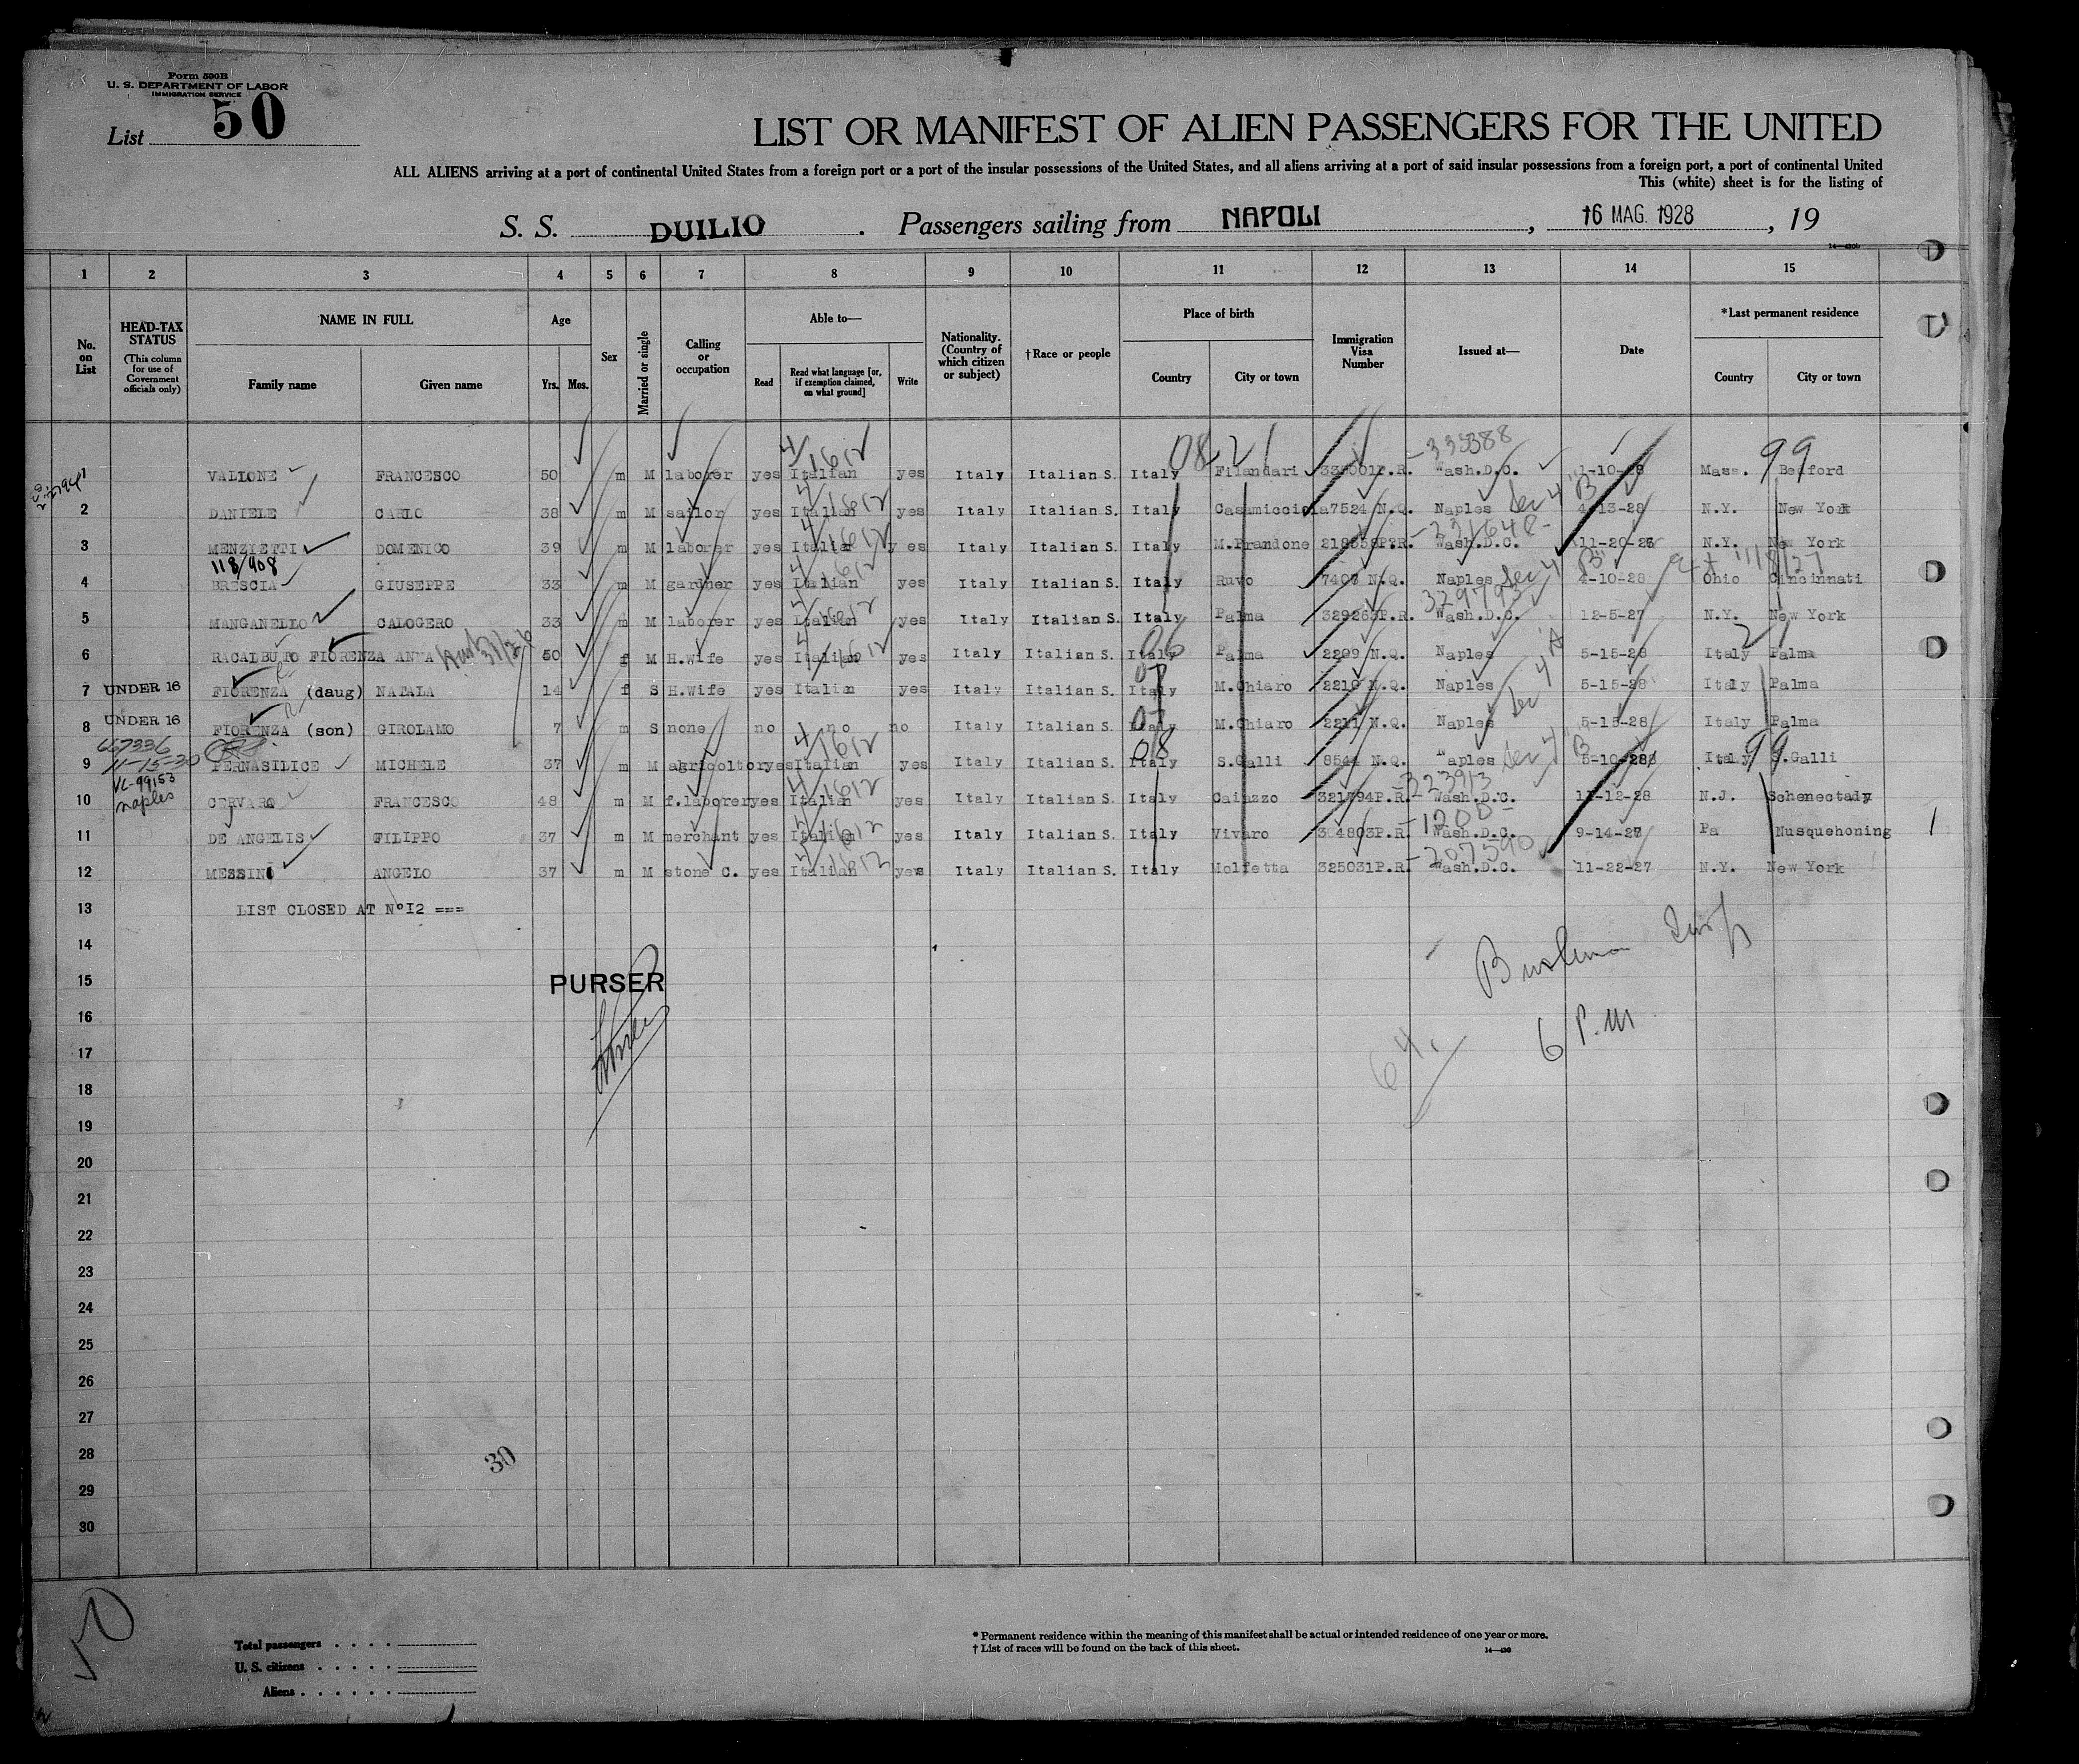 Form 500B
U. S. DEPARTMENT OF LABOR
IMMIGRATION SERVICE
List 50
LIST OR MANIFEST OF ALIEN PASSENGERS FOR THE UNITED
ALL ALIENS arriving at a port of continental United States from a foreign port or a port of the insular possessions of the United States, and all aliens arriving at a port of said insular possessions from a foreign port, a port of continental United
This (white) sheet is for the listing of
S. S. DUILIO. Passengers sailing from NAPOLI, 16 MAG. 1928, 19
1 2 3 4 5 6 7 8 9 10 11 12 13 14 15
No. on List
HEAD-TAX STATUS (This column for use of Government officials only)
NAME IN FULL Family name Given name
Age Yrs. Mos.
Sex
Married or single
Calling or occupation
Able to— Read Read what language [or, if exemption claimed, on what ground] Write
Nationality. (Country of which citizen or subject)
†Race or people
Place of birth Country City or town
Immigration Visa Number
Issued at—
Date
*Last permanent residence Country City or town
08 21 99
1 VALLONE FRANCESCO 50 m M laborer yes Italian yes Italy Italian S. Italy Filandari P.R. Wash.D.C. 1-10-28 Mass. Bedford
2 DANIELE CARLO 38 m M sailor yes Italian yes Italy Italian S. Italy Casamicciola 7524 N.Q. Naples 4-13-28 N.Y. New York
3 MENZIETTI DOMENICO 39 m M laborer yes Italian yes Italy Italian S. Italy M.Prandone P.R. Wash.D.C. N.Y. New York
118/908
4 BRESCIA GIUSEPPE 33 m M gardner yes Italian yes Italy Italian S. Italy Ruvo 7407 N.Q. Naples 4-10-28 Ohio Cincinnati
5 MANGANELLO CALOGERO 33 m M laborer yes Italian yes Italy Italian S. Italy Palma 329263P.R. Wash.D.C. 12-5-27 N.Y. New York
6 RACALBUTO FIORENZA ANNA 50 f M H.Wife yes Italian yes Italy Italian S. Italy Palma 2209 N.Q. Naples 5-15-28 Italy Palma
7 UNDER 16 FIORENZA (daug) NATALA 14 f S H.Wife yes Italian yes Italy Italian S. Italy M.Chiaro 2210 N.Q. Naples 5-15-28 Italy Palma
8 UNDER 16 FIORENZA (son) GIROLAMO 7 m S none no no no Italy Italian S. Italy M.Chiaro 2211 N.Q. Naples 5-15-28 Italy Palma
11-15-30
9 PERNASILICE MICHELE 37 m M agricoltor yes Italian yes Italy Italian S. Italy S.Galli 8544 N.Q. Naples 5-10-28 Italy S.Galli
VL-99153
Naples
10 CERVARO FRANCESCO 48 m M f.laborer yes Italian yes Italy Italian S. Italy Caiazzo P.R. Wash.D.C. N.J. Schenectady
11 DE ANGELIS FILIPPO 37 m M merchant yes Italian yes Italy Italian S. Italy Vivaro 304803P.R. Wash.D.C. 9-14-27 Pa Nusquehoning
12 MESSINO ANGELO 37 m M stone C. yes Italian yes Italy Italian S. Italy Molfetta 325031P.R. Wash.D.C. 11-22-27 N.Y. New York
13 LIST CLOSED AT N°12 ===
14
15 PURSER
16
6 P.M
17
18
19
20
21
22
23
24
25
26
27
28
30
29
30
50
Total passengers
U. S. citizens
Aliens
* Permanent residence within the meaning of this manifest shall be actual or intended residence of one year or more.
† List of races will be found on the back of this sheet.